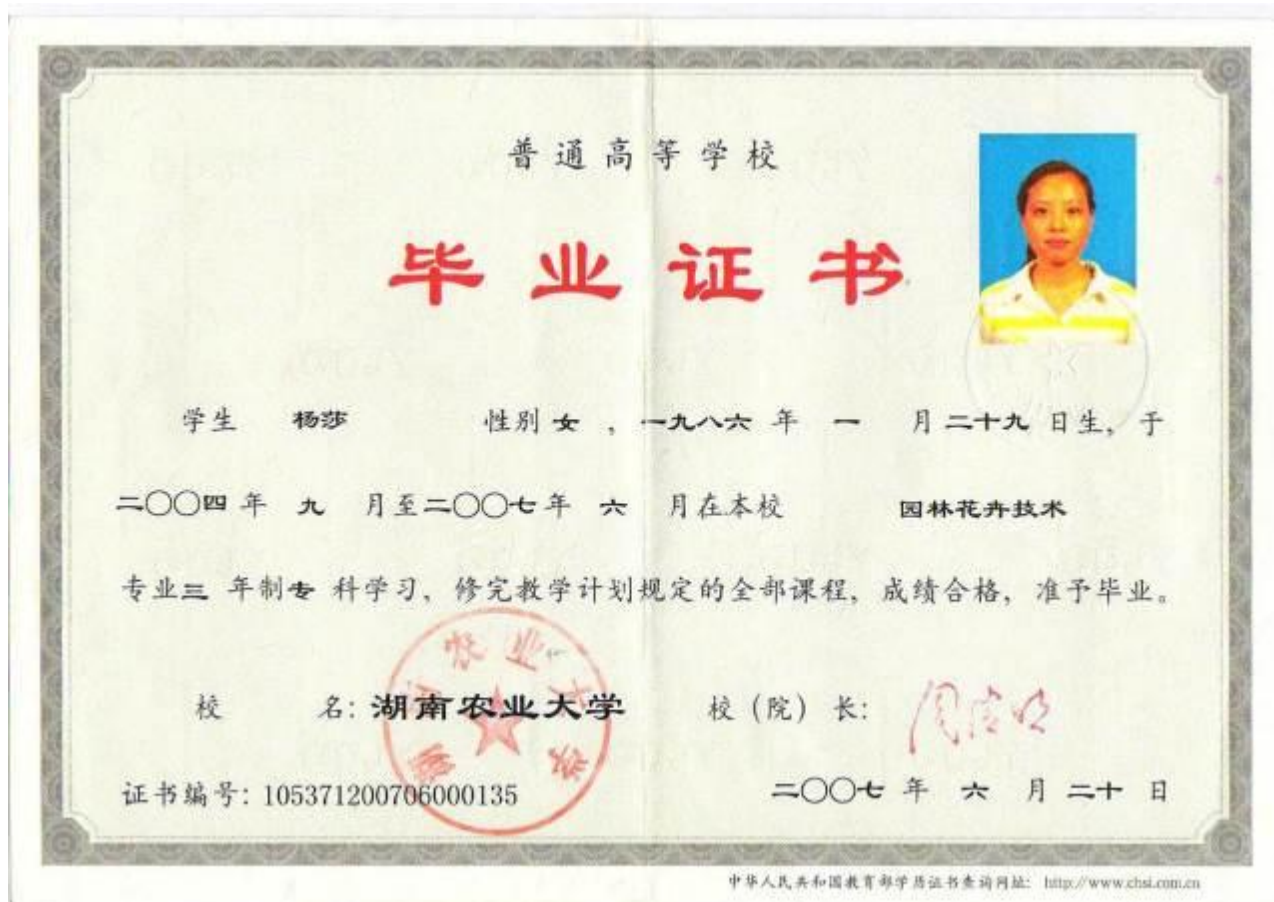 普通高等学校
毕业证书
学生 杨莎 性别 女 , 一九八六 年 一 月 二十九 日生, 于
二〇〇四 年 九 月至二〇〇七 年 六 月在本校 园林花卉技术
专业三 年制专 科学习, 修完教学计划规定的全部课程, 成绩合格, 准予毕业。
校 名: 湖南农业大学 校 (院) 长:
湖南农业大学
证书编号: 105371200706000135 二〇〇七 年 六 月 二十 日
中华人民共和国教育部学历证书查询网址: http://www.chsi.com.cn